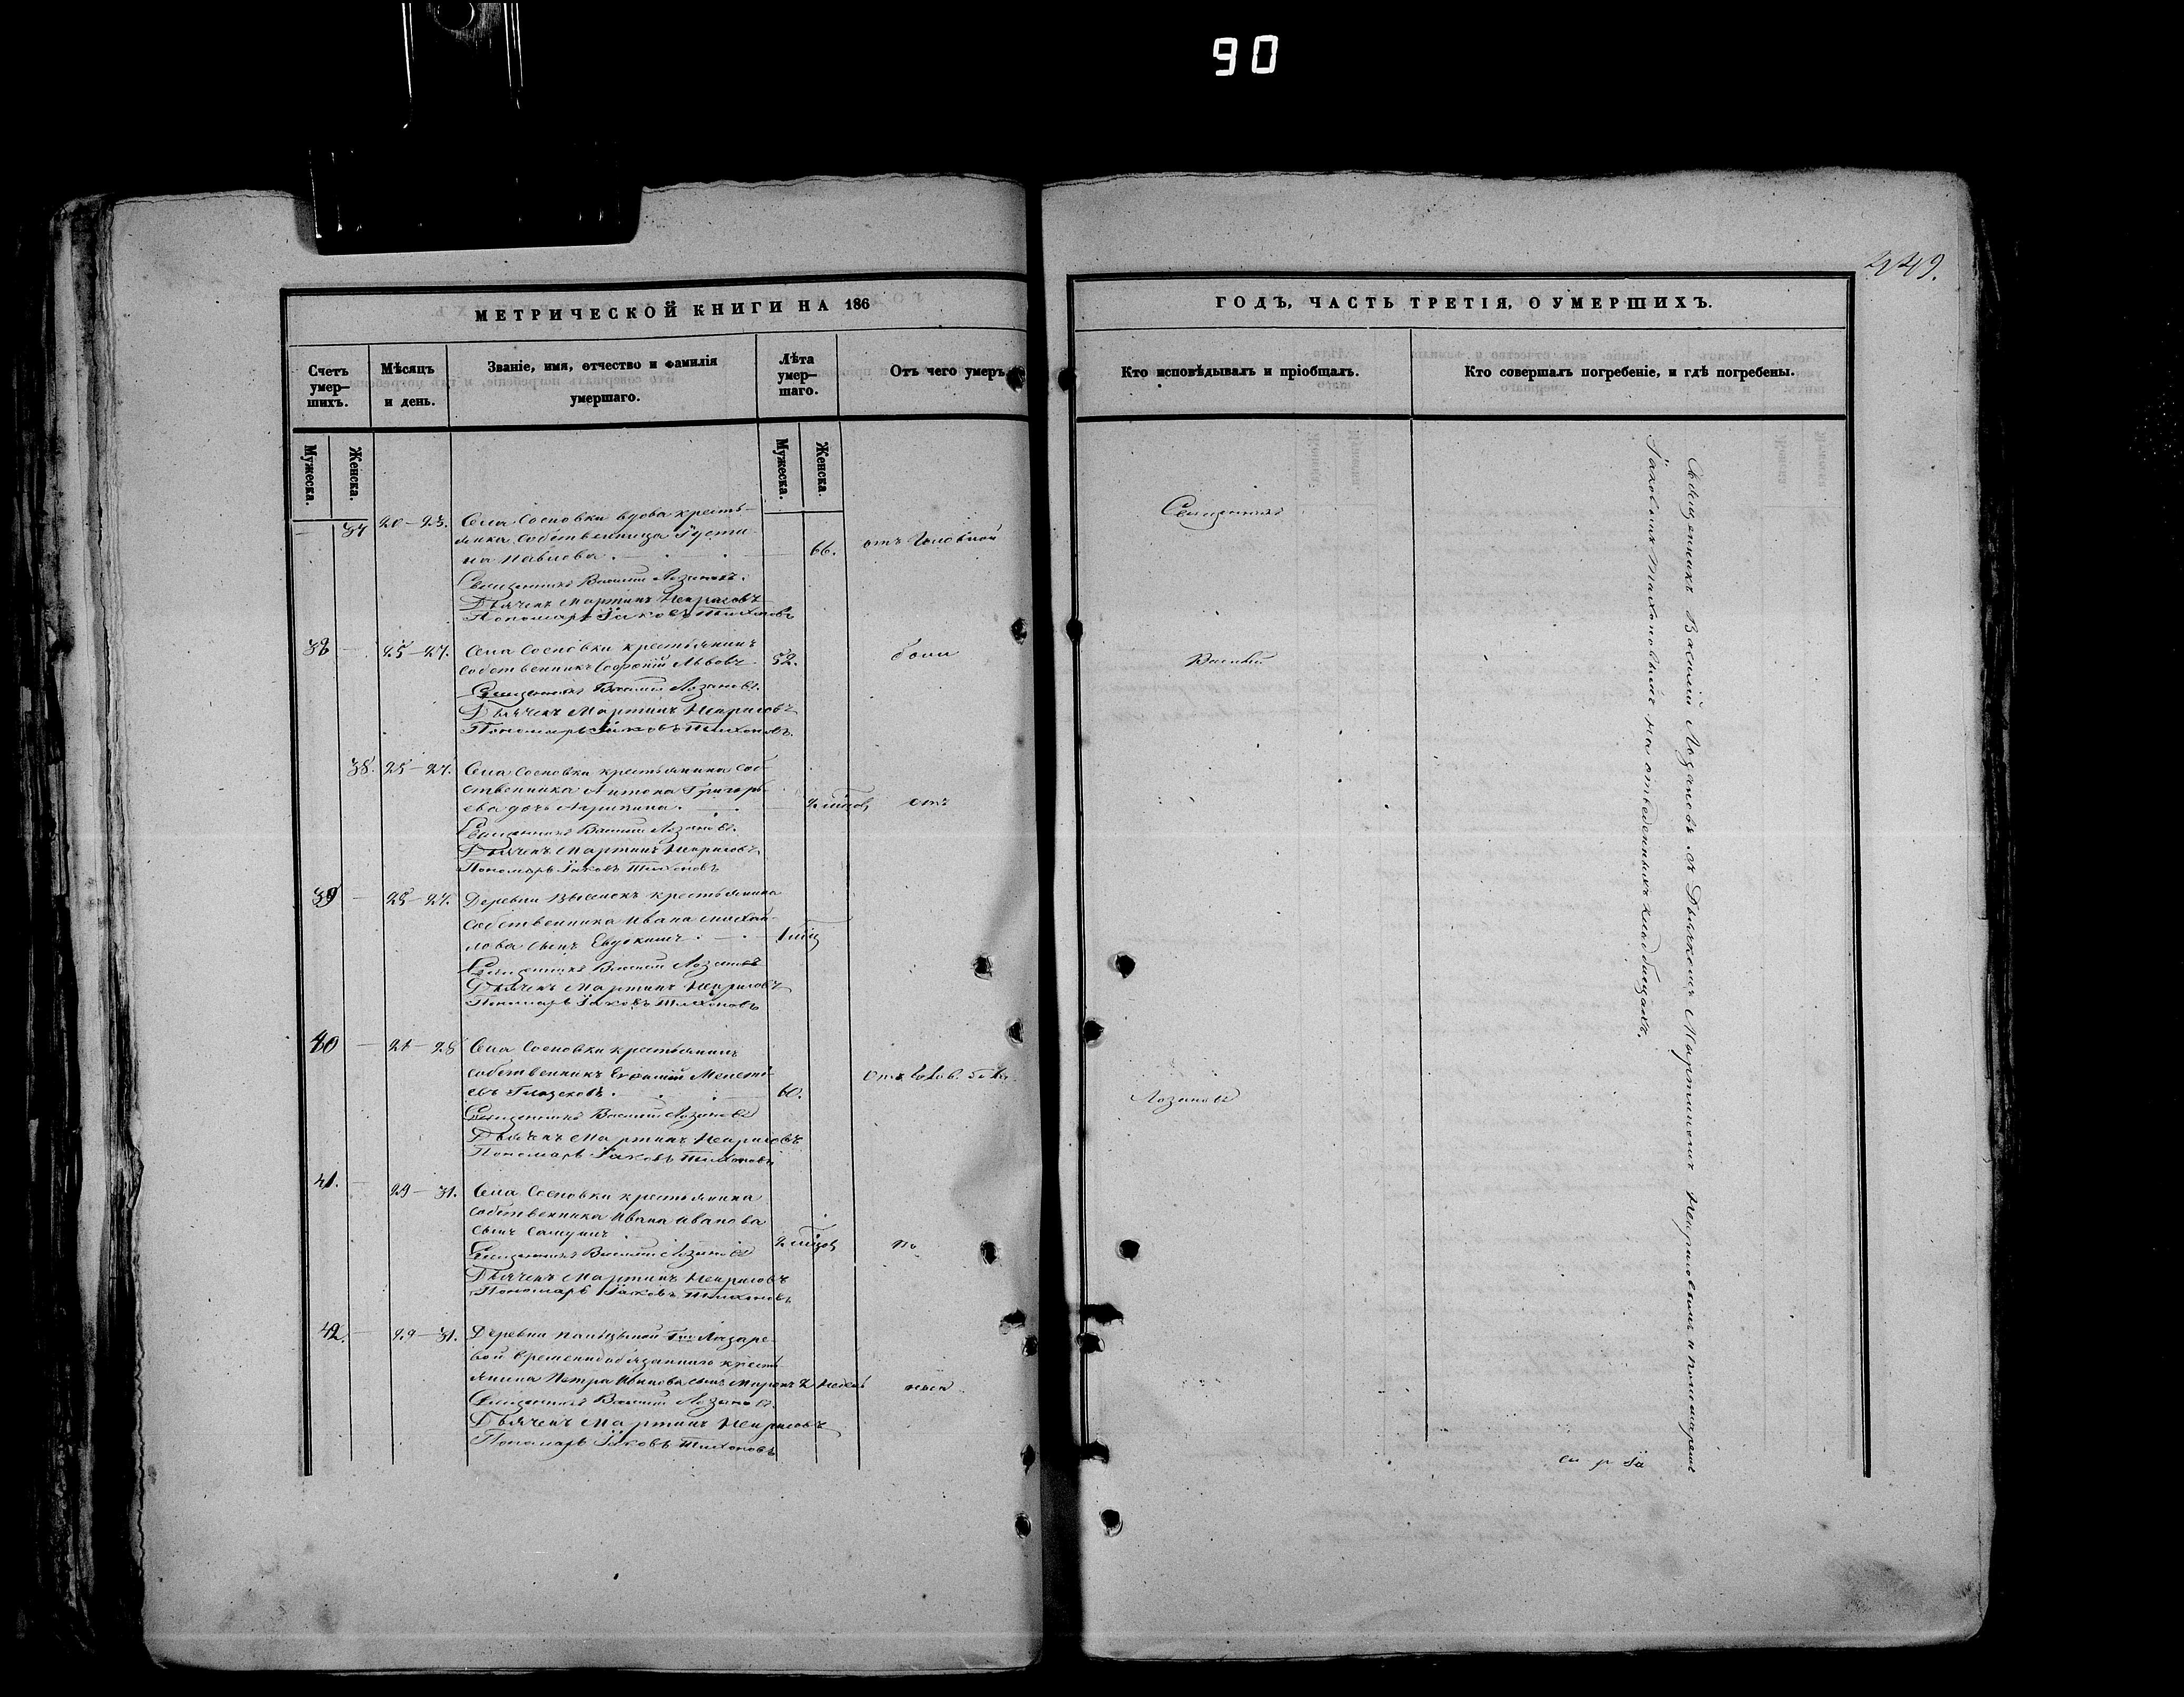 90
449.
МЕТРИЧЕСКОЙ КНИГИ НА 186
Счетъ умер-
шихъ.
Мѣсяцъ
и день.
Званіе, имя, отчество и фамилія
умершаго.
Лѣта
умер-
шаго.
Отъ чего умеръ
Мужеска.
Женска.
Мужеска.
Женска.
37 20-23. Села Сосновки вдова кресть-
янка собственница Іусти-
на Павлова. 66. отъ головной
Священникъ Василій Лозановъ.
Дьячекъ Мартинъ Некрасовъ
Пономарь Іаковъ Тихоновъ
38 25-27. Села Сосновки крестьянинъ
собственникъ Софроній Львовъ 52. боли
Священникъ Василій Лозановъ.
Дьячекъ Мартинъ Некрасовъ
Пономарь Іаковъ Тихоновъ.
38. 25-27. Села Сосновки крестьянина соб-
ственника Антона Григорь-
ева дочь Агрипина. 2 отъ
Священникъ Василій Лозановъ.
Дьячекъ Мартинъ Некрасовъ
Пономарь Іаковъ Тихоновъ
39 25-27. Деревни крестьянина
собственника Ивана Михай-
лова сынъ Евдокимъ. 1
Священникъ Василій Лозановъ
Дьячекъ Мартинъ Некрасовъ
Пономарь Іаковъ Тихоновъ
40 28 Села Сосновки крестьянинъ
собственникъ
60. Отъ голов. боли
Священникъ Василій Лозановъ
Дьячекъ Мартинъ Некрасовъ
Пономарь Іаковъ Тихоновъ
41. 29-31. Села Сосновки крестьянина
собственника Ивана Иванова
сынъ 2
Священникъ Василій Лозановъ
Дьячекъ Мартинъ Некрасовъ
Пономарь Іаковъ Тихоновъ
42. 29-31. Деревни Лазаре-
вой временнообязаннаго кресть
янина Петра Иванова сынъ Миронъ 2
Священникъ Василій Лозановъ
Дьячекъ Мартинъ Некрасовъ
Пономарь Іаковъ Тихоновъ
ГОДЪ, ЧАСТЬ ТРЕТІЯ, О УМЕРШИХЪ.
Кто исповѣдывалъ и пріобщалъ.
Кто совершалъ погребеніе, и гдѣ погребены.
Священникъ
Василій
Лозановъ
Священникъ Василій Лозановъ съ Дьячкомъ Мартиномъ Некрасовымъ и пономаремъ
Іаковомъ Тихоновымъ на отведенныхъ кладбищахъ.